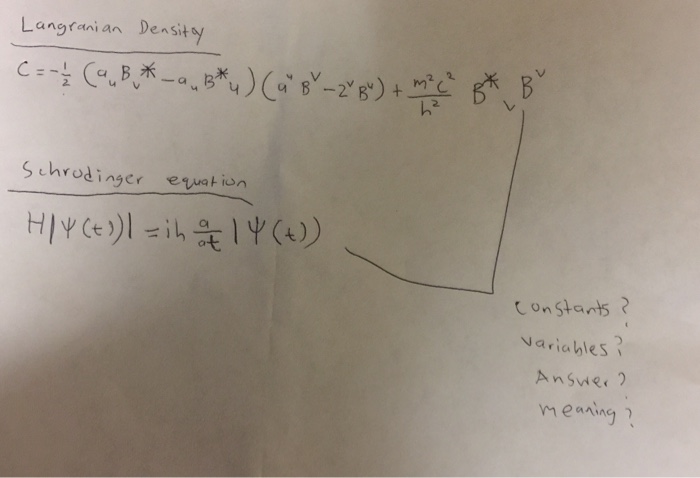 Langranian Density
C = -1/2 (a_u B_v* - a_u B*_u) (a^u B^v - 2^v B^u) + m²c²/h² B*_v B^v
Schrodinger equation
H|Ψ(t))| = ih a/at |Ψ(t))
Constants?
Variables?
Answer?
meaning?